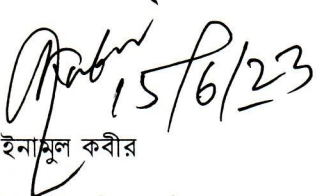 15/6/23
ইনামুল কবীর